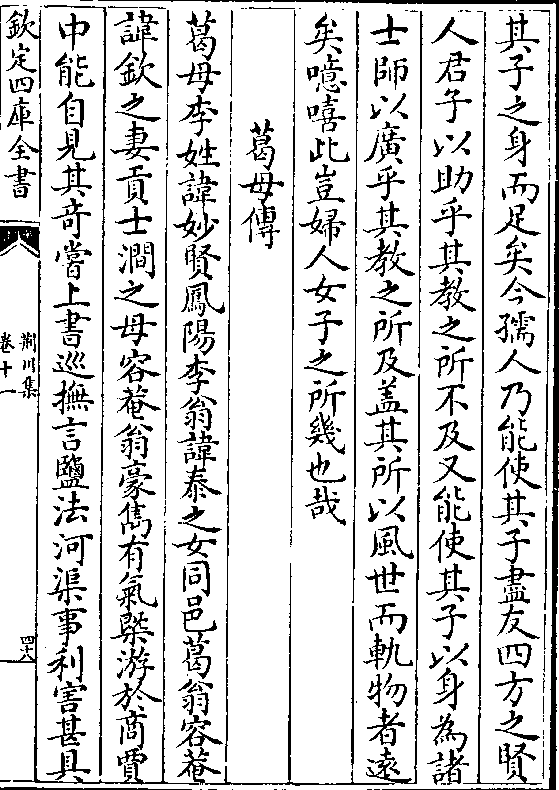 其子之身而足矣今孺人乃能使其子盡友四方之賢
人君子以助乎其教之所不及又能使其子以身為諸
士師以廣乎其教之所及盖其所以風世而軌物者遠
矣噫嘻此豈婦人女子之所幾也哉
葛母傳
葛母李姓諱妙賢鳳陽李翁諱泰之女同邑葛翁容菴
諱欽之妻貢士澗之母容菴翁豪雋有氣槩游於商賈
中能自見其奇嘗上書巡撫言鹽法河渠事利害甚具
欽定四庫全書
荆川集
卷十一
四六